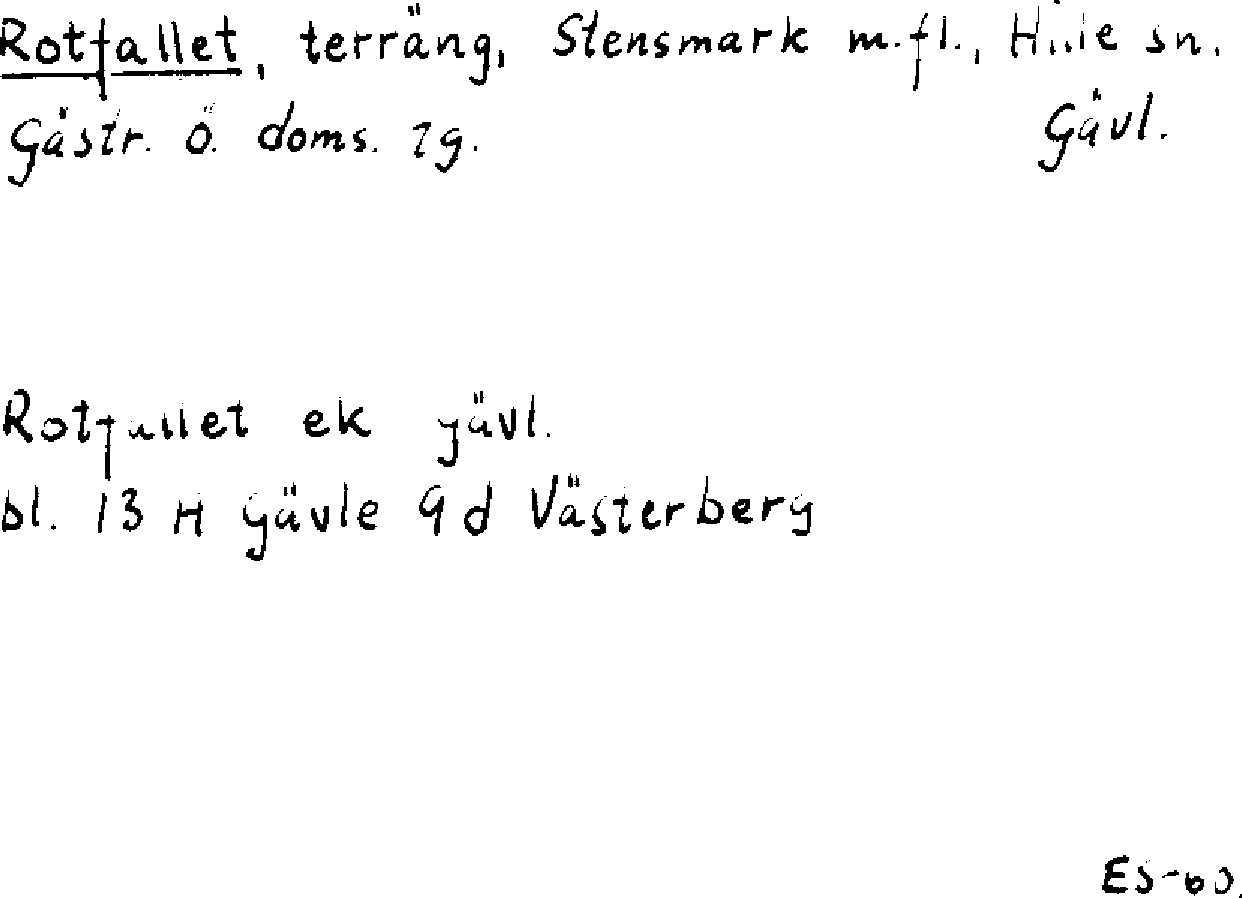 Rotfallet, terräng, Stensmark m.fl., Hille sn.
Gästr. ö. doms. tg. Gävl.
Rotfallet ek gävl.
bl. 13 H Gävle 9d Västerberg